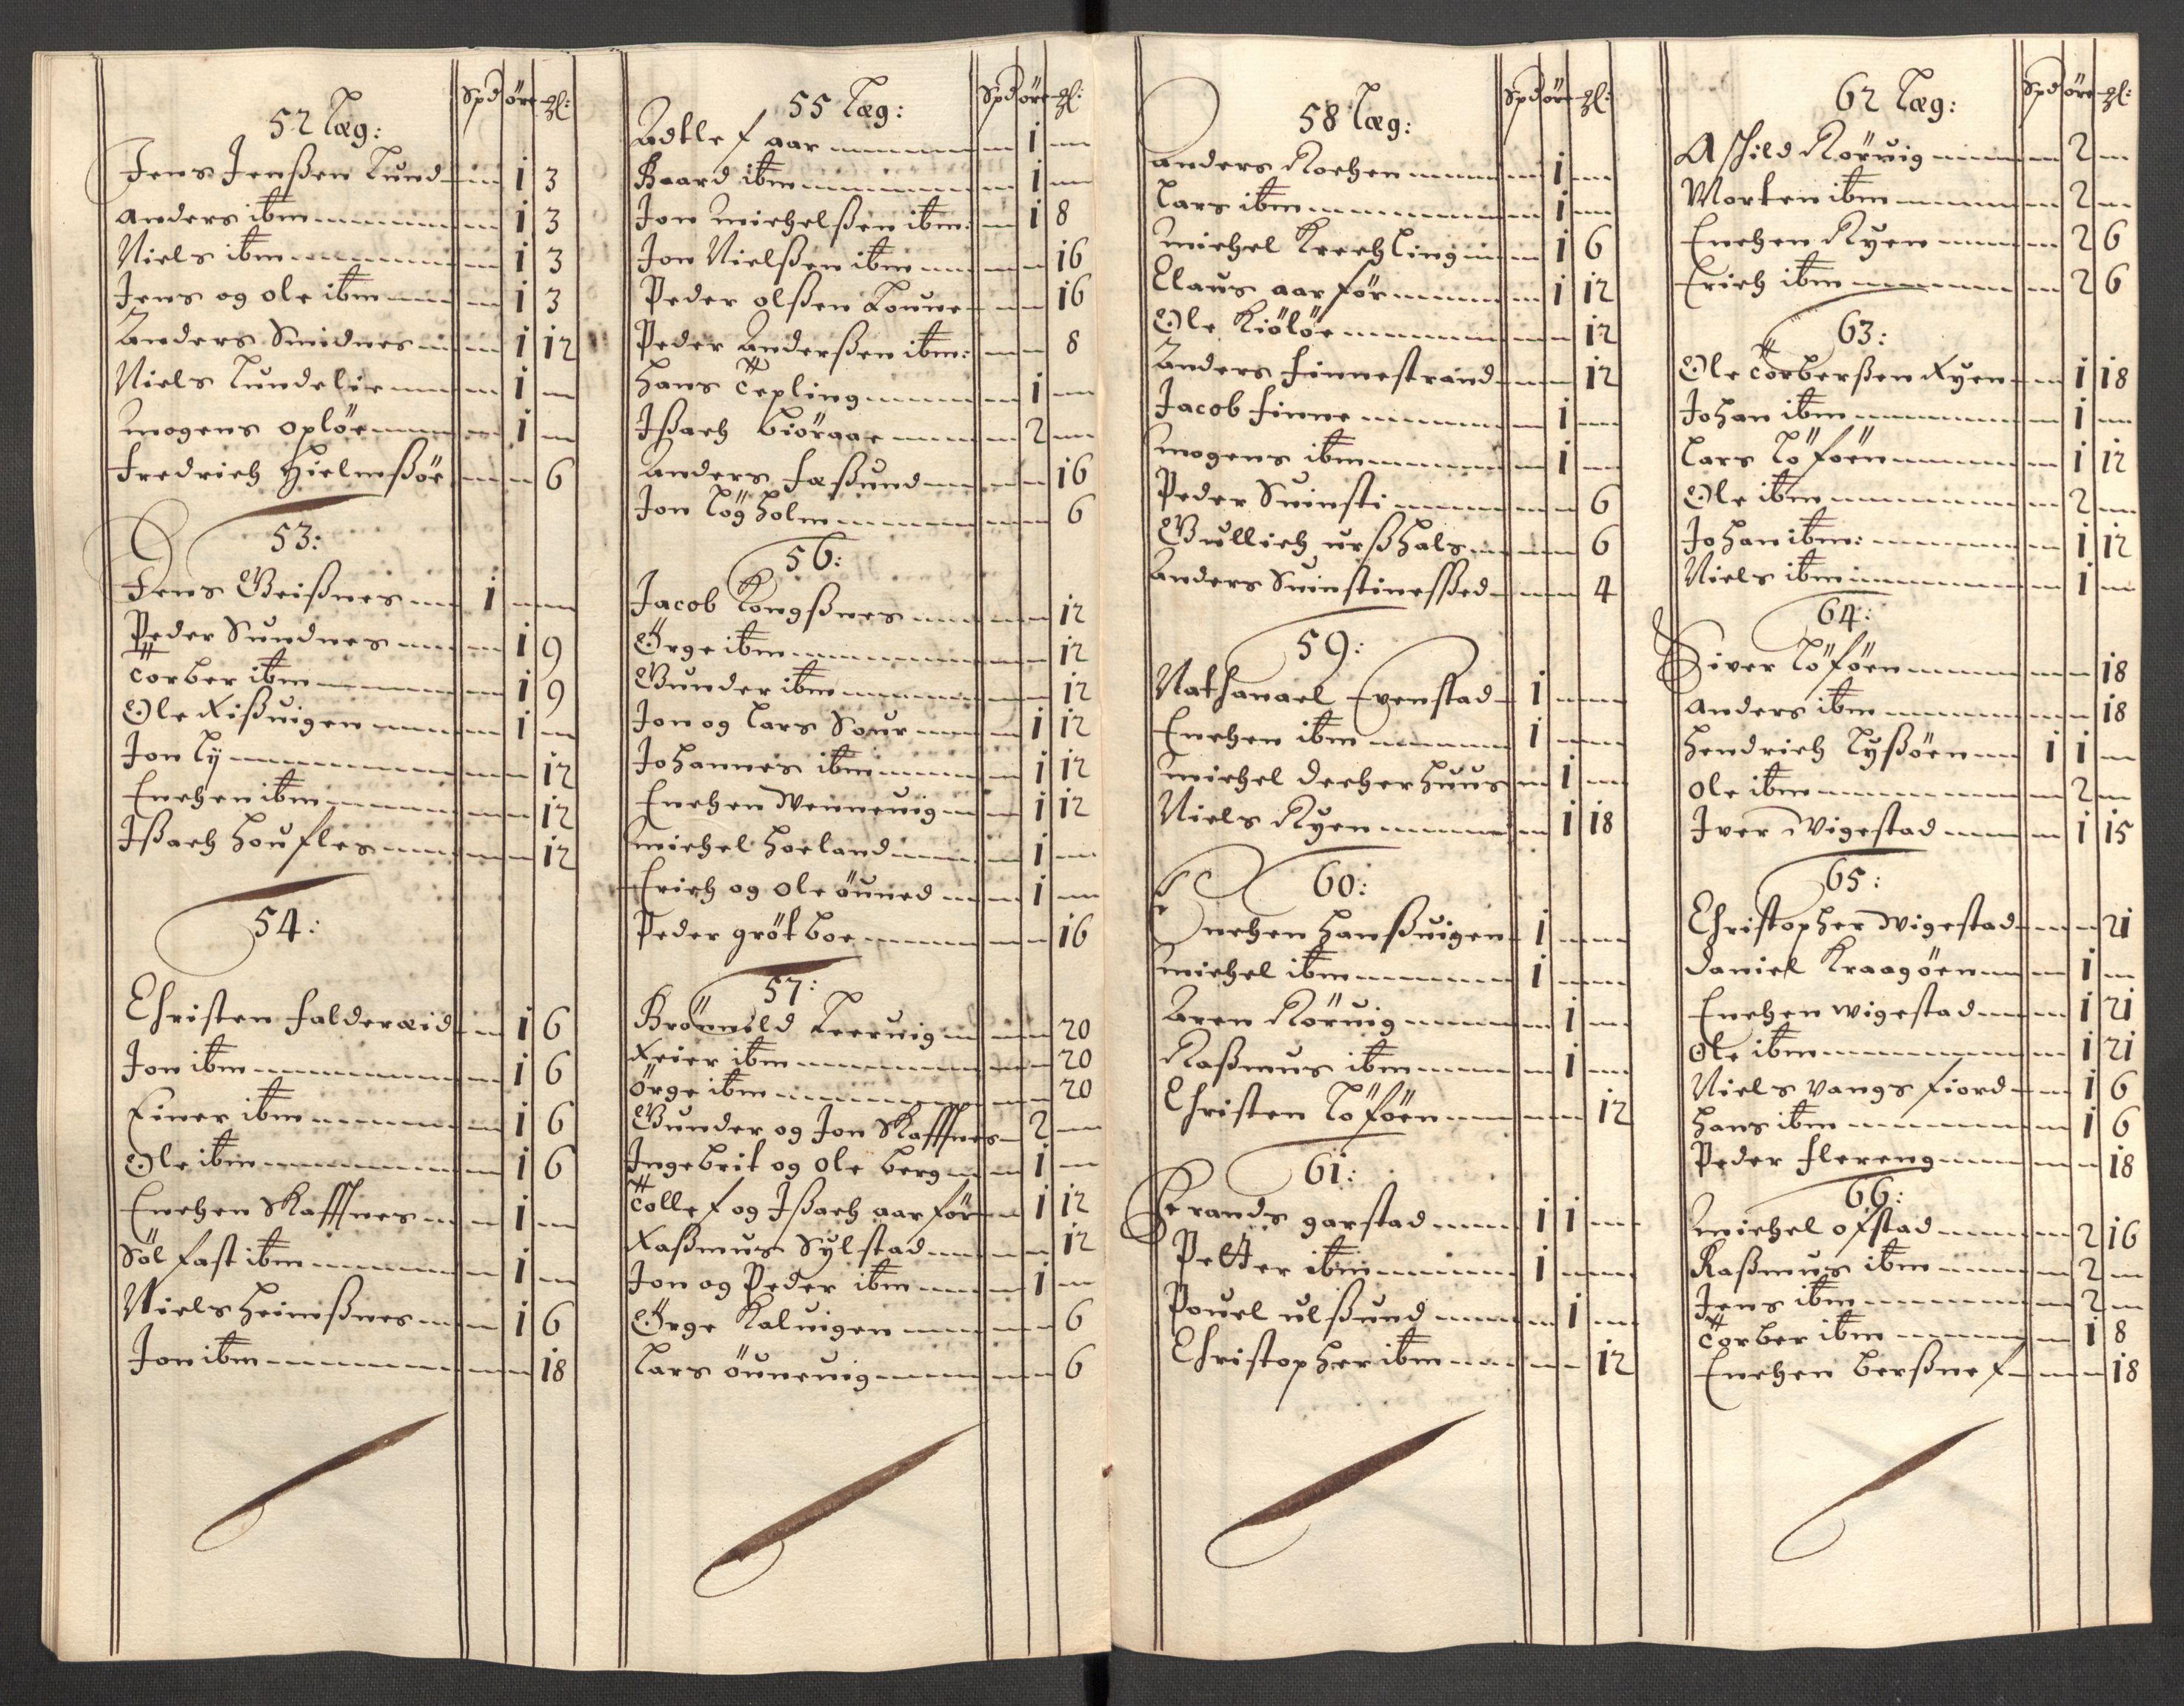 52 Læg: Spd öre gl:
Jens Jenßen Lund 1 3
Anders ibm 1 3
Niels ibm 1 3
Jens og Ole ibm 1 3
Anders Smidnes 1 12
Niels Lundelie 1
Mogens Oplöe 1
Fredrich Hielmßöe 6
53:
Jens Geißnes 1
Peder Sundnes 1 9
Torber ibm 1 9
Ole Rißvigen 1
Jon Ly 12
Enchen ibm 12
Ißach Houfles 12
54:
Christen Falderæid 1 6
Jon ibm 1 6
Einer ibm 1 6
Ole ibm 1 6
Enchen Skaffnes 1
Sölfast ibm 1
Niels Heimßnes 1 6
Jon ibm 18
55 Læg: Spd öre gl:
Adtlef aar 1
Baard ibm 1
Jon Michelßen ibm: 1 8
Jon Nielßen ibm 16
Peder Olßen Louve 16
Peder Anderßen ibm: 8
Hans Tepling 1
Ißach Biöraae 2
Anders Faßund 16
Jon Lögholm 6
56:
Jacob Kongßnes 12
Örge ibm 12
Gunder ibm 12
Jon og Lars Sour 1 12
Johannes ibm 1 12
Enchen Wennevig 1 12
Michel Hoeland 1
Erich og Ole öuned 1
Peder Grötboe 16
57:
Brönnild Leervig 20
Reier ibm 20
Örge ibm 20
Gunder og Jon Skaffnes 2
Ingebrit og Ole Berg 1
Tollef og Ißach aarför 1 12
Raßmus Sylstad 12
Jon og Peder ibm 1
Örge Kalvigen 6
Lars öunevig 6
58 Læg: Spd öre gl:
Anders Rochen 1
Lars ibm 1
Michel Krechling 1 6
Claus aarför 1 12
Ole Kiölöe 12
Anders Finnestrand 12
Jacob Finne 1
Mogens ibm 1
Peder Svinsti 6
Gullich urßhals 6
Anders Svinstineßed 4
59:
Nathanael Evenstad 1
Enchen ibm 1
Michel Decherhuus 1
Niels Ryen 1 18
60:
Enchen Hanßvigen 1
Michel ibm 1
Aren Rörvig 1
Raßmus ibm 1
Christen Löföen 12
61:
Frands garstad 1 1
Petter ibm 1
Pouel ulßund 1
Christopher ibm 12
62 Læg: Spd öre gl:
Ashild Rörvig 2
Morten ibm 2
Enchen Ryen 2 6
Erich ibm 2 6
63:
Ole Torberßen Ryen 1 18
Johan ibm 1
Lars Löföen 1 12
Ole ibm 2
Johan ibm: 1 12
Niels ibm 1
64:
Siver Löföen 18
Anders ibm 18
Hendrich Lyßöen 1 1
Ole ibm 2
Iver Wigestad 1 15
65:
Christopher Wigestad 21
Daniel Kraagöen 1
Enchen Wigestad 1 21
Ole ibm 1 21
Niels Vangsfiord 1 6
Hans ibm 1 6
Peder Flereng 18
66:
Michel Ofstad 2 16
Raßmus ibm 2
Jens ibm 2
Torber ibm 1 8
Enchen Berßnef 18